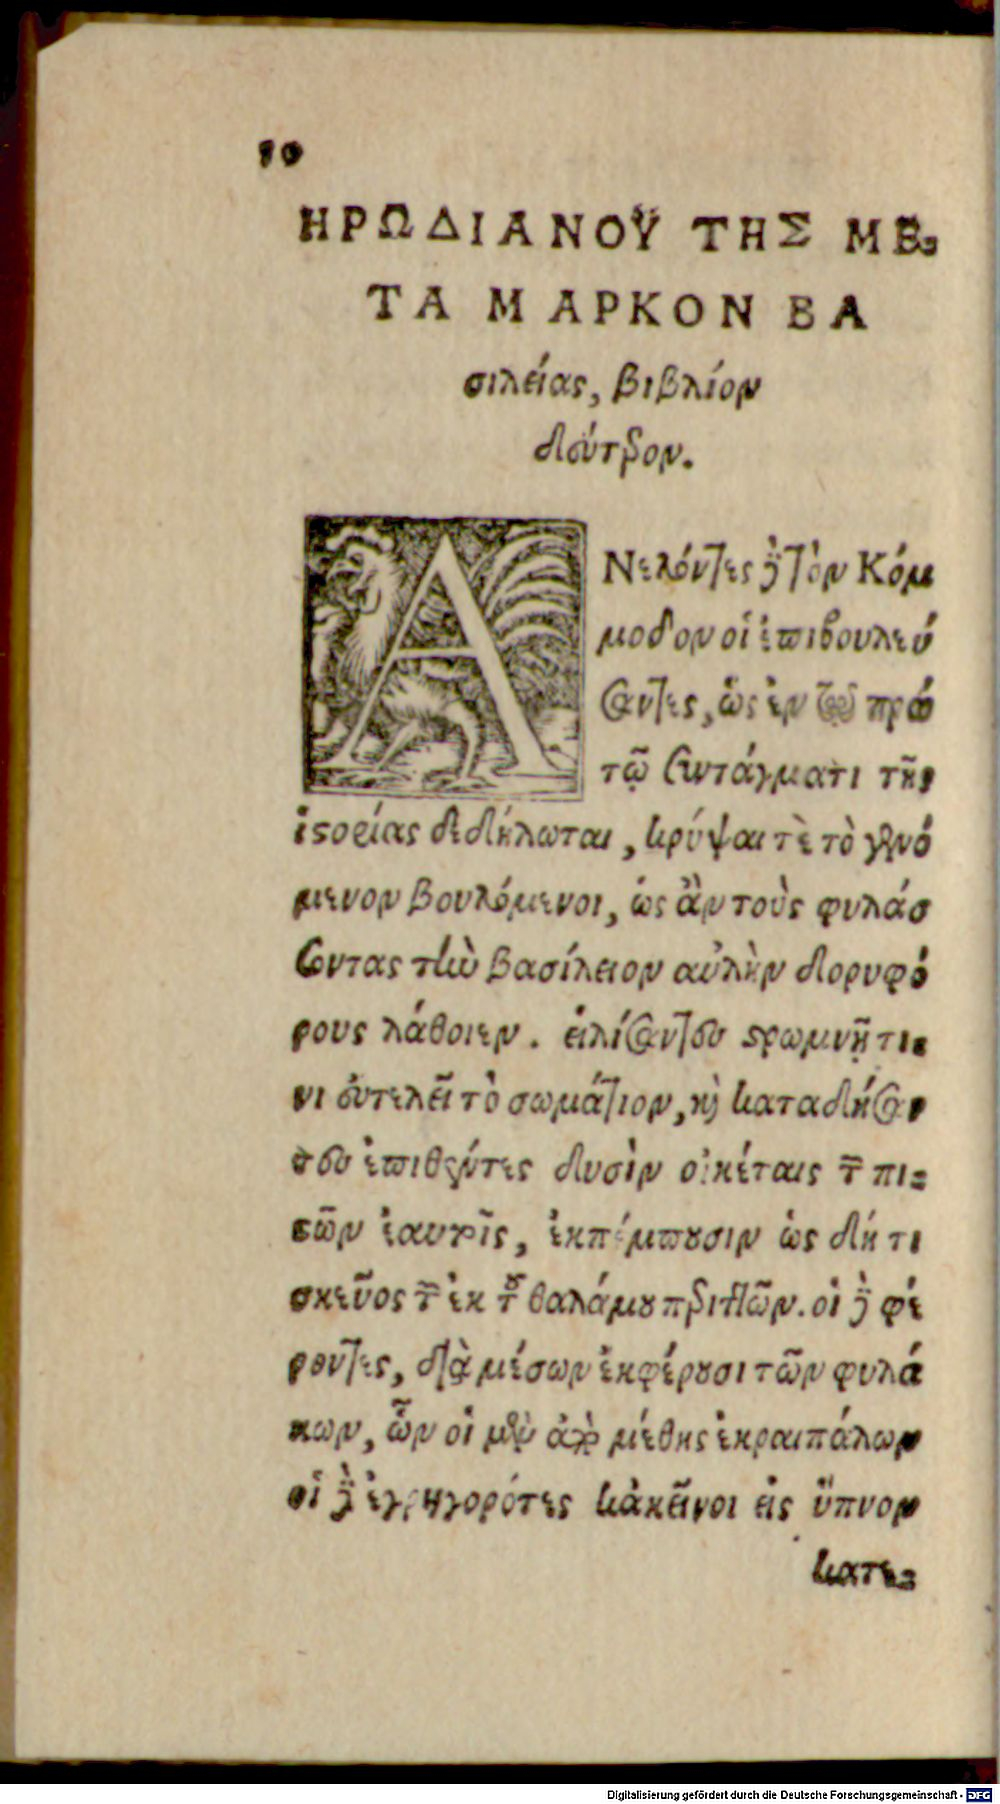 70
ΗΡΩΔΙΑΝΟΥ͂ ΤΗΣ ΜΕ-
ΤΑ ΜΑΡΚΟΝ ΒΑ
σιλείας, βιβλίον
δεύτερον.
ΑΝελόντες δὲ τὸν Κόμ
μοδον οἱ ἐπιβουλεύ
σαντες, ὡς ἐν τῷ πρώ
τῳ συντάγματι τῆς
ἱστορίας δεδήλωται, κρύψαι τὲ τὸ γενό
μενον βουλόμενοι, ὡς ἂν τοὺς φυλάσ
σοντας τὴν βασίλειον αὐλὴν δορυφό
ρους λάθοιεν. εἱλίσαντες στρωμνῇ τι-
νι εὐτελεῖ τὸ σωμάτιον, καὶ καταδήσαν
τες ἐπιθέντες δυσὶν οἰκέταις τῶν πι-
στῶν ἑαυτοῖς, ἐκπέμπουσιν ὡς δή τι
σκεῦος τῶν ἐκ τοῦ θαλάμου περιττῶν. οἱ δὲ φέ
ροντες, διὰ μέσων ἐκφέρουσι τῶν φυλά
κων, ὧν οἱ μὲν ὑπὸ μέθης ἐκραιπάλων
οἱ δὲ ἐγρηγορότες κἀκεῖνοι εἰς ὕπνον
κατε-
Digitalisierung gefördert durch die Deutsche Forschungsgemeinschaft - DFG